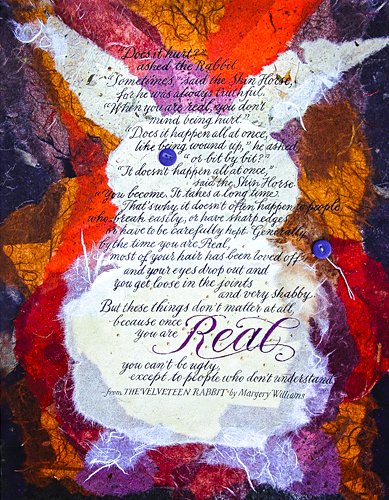 "Does it hurt?"
asked the Rabbit.
"Sometimes" said the Skin Horse,
for he was always truthful.
"When you are real, you don't
mind being hurt."
"Does it happen all at once,
like being wound up," he asked,
"or bit by bit?"
"It doesn't happen all at once,"
said the Skin Horse
"You become. It takes a long time.
That's why it doesn't often happen to people
who break easily, or have sharp edges,
or have to be carefully kept. Generally
by the time you are Real,
most of your hair has been loved off
and your eyes drop out and
you get loose in the joints
and very shabby.
But these things don't matter at all,
because once
you are Real
you can't be ugly,
except to people who don't understand.
from THE VELVETEEN RABBIT by Margery Williams